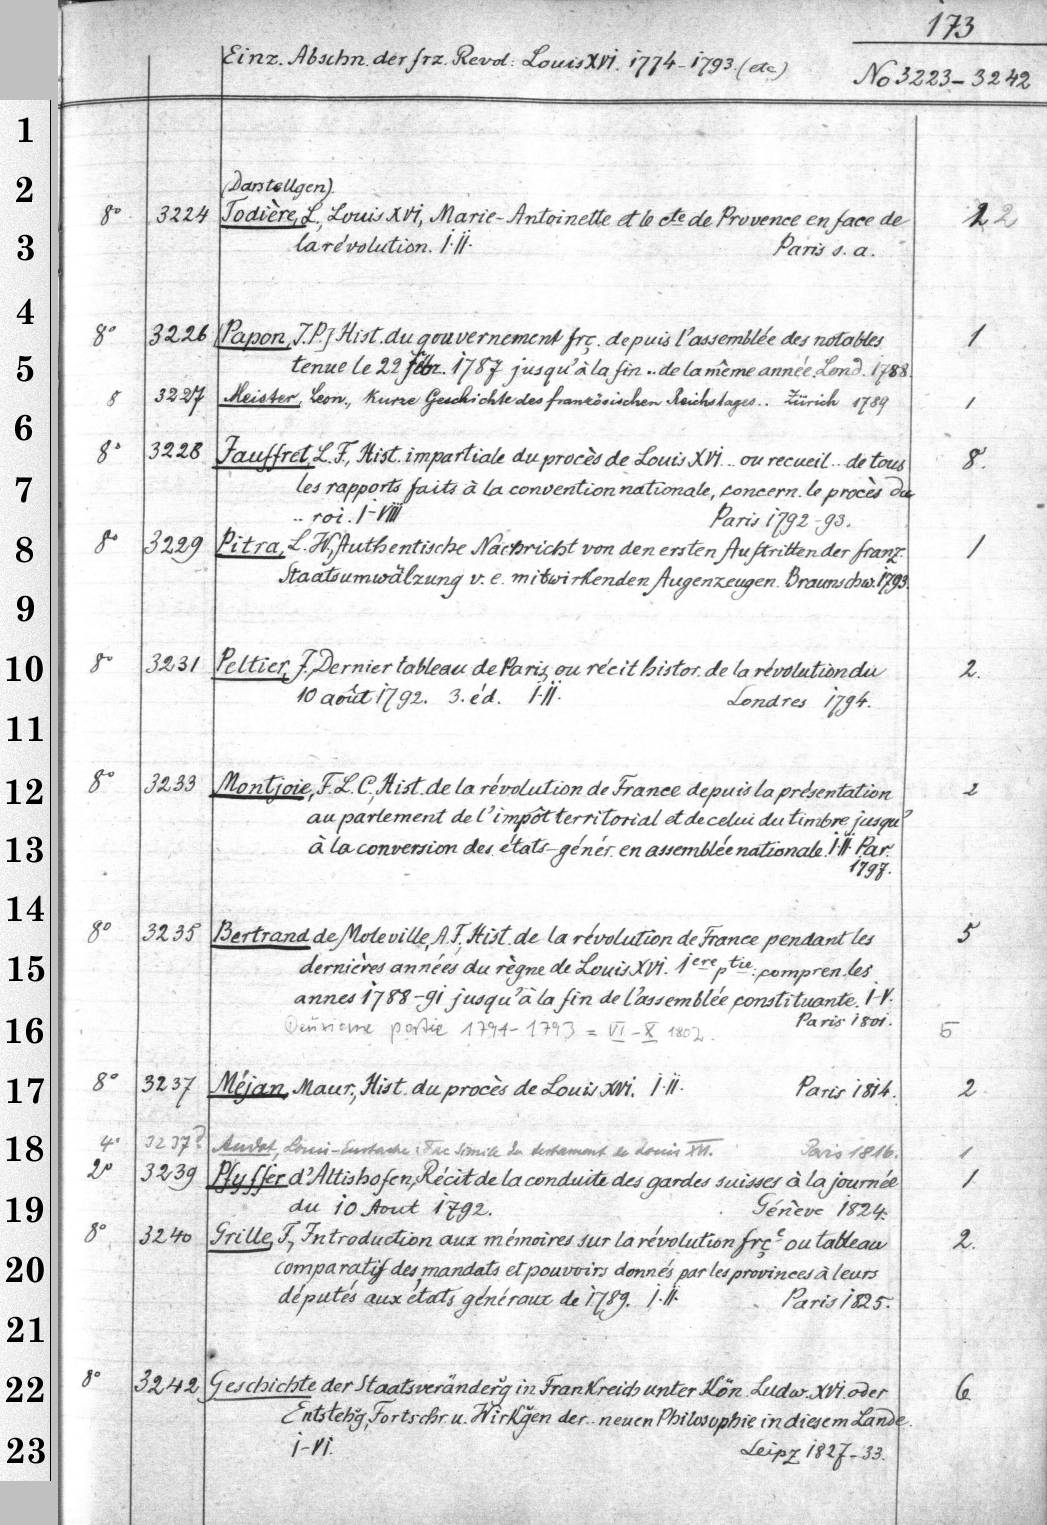 173
Einz. Abschn. der frz. Revol: Louis XVI. 1774-1793. (etc)
No 3223-3242
1
2
(Darstellgen).
8° 3224 Todière, L., Louis XVI, Marie-Antoinette et le cte de Provence en face de 2
3
la révolution. I.II. Paris s. a.
4
8° 3226 [Papon, J.P.] Hist. du gouvernement frç. depuis l'assemblée des notables 1
5
tenue le 22 febr. 1787 jusqu'à la fin .. de la même année. Lond. 1788.
8 3227 Meister, Leon., Kurze Geschichte des französischen Reichstages.. Zürich 1789 1
6
8° 3228 Jauffret, L.F., Hist. impartiale du procès de Louis XVI .. ou recueil .. de tous 8.
7
les rapports faits à la convention nationale, concern. le procès du
.. roi. I-VIII Paris 1792-93.
8
8° 3229 Pitra, L.W., Authentische Nachricht von den ersten Auftritten der franz. 1
Staatsumwälzung v. e. mitwirkenden Augenzeugen. Braunschw. 1793.
9
10
8° 3231 Peltier, J., Dernier tableau de Paris, ou récit histor. de la révolution du 2.
10 août 1792. 3. éd. I.II. Londres 1794.
11
12
8° 3233 Montjoie, F.L.C., Hist. de la révolution de France depuis la présentation 2
au parlement de l'impôt territorial et de celui du timbre jusqu'
13
à la conversion des états-génér. en assemblée nationale. I.II. Par.
1797.
14
8° 3235 Bertrand de Moleville, A.F., Hist. de la révolution de France pendant les 5
15
dernières années du règne de Louis XVI. 1ere ptie: compren. les
annes 1788-91 jusqu'à la fin de l'assemblée constituante. I-V.
Paris 1801.
16
Deuxieme partie 1791-1793 = VI-X 1802. 5
17
8° 3237 Méjan, Maur., Hist. du procès de Louis XVI. I.II. Paris 1814. 2
18
4° 3237? Louis-Eustache: Fac simile du testament de Louis XVI. Paris 1816. 1
2° 3239 Pfyffer d'Altishofen, Récit de la conduite des gardes suisses à la journée 1
19
du 10 Aout 1792. Génève 1824.
8° 3240 Grille, F., Introduction aux mémoires sur la révolution frçe ou tableau 2.
20
comparatif des mandats et pouvoirs donnés par les provinces à leurs
députés aux états généraux de 1789. I.II. Paris 1825.
21
22
8° 3242 Geschichte der Staatsveränderg in Frankreich unter Kön. Ludw. XVI. oder 6
Entstehg, Fortschr. u. Wirkgen der .. neuen Philosophie in diesem Lande.
23
I-VI. Leipz 1827-33.